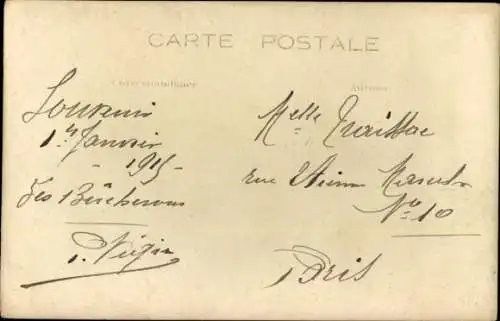 CARTE POSTALE
Correspondance
Adresse
Souvenir
1er Janvier
- 1915 -
Les Bûcherons
Melle
rue Etienne Marcel
No 10
Paris